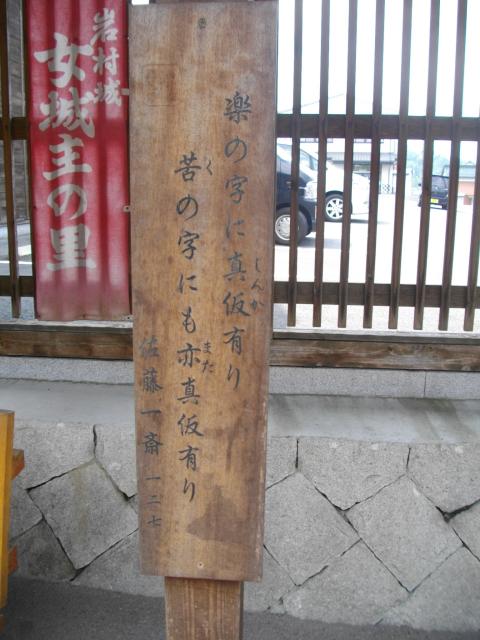 楽の字に真仮有り
しんか
苦の字にも亦真仮有り
く
また
佐藤一斎 一二七
岩村城
女城主の里